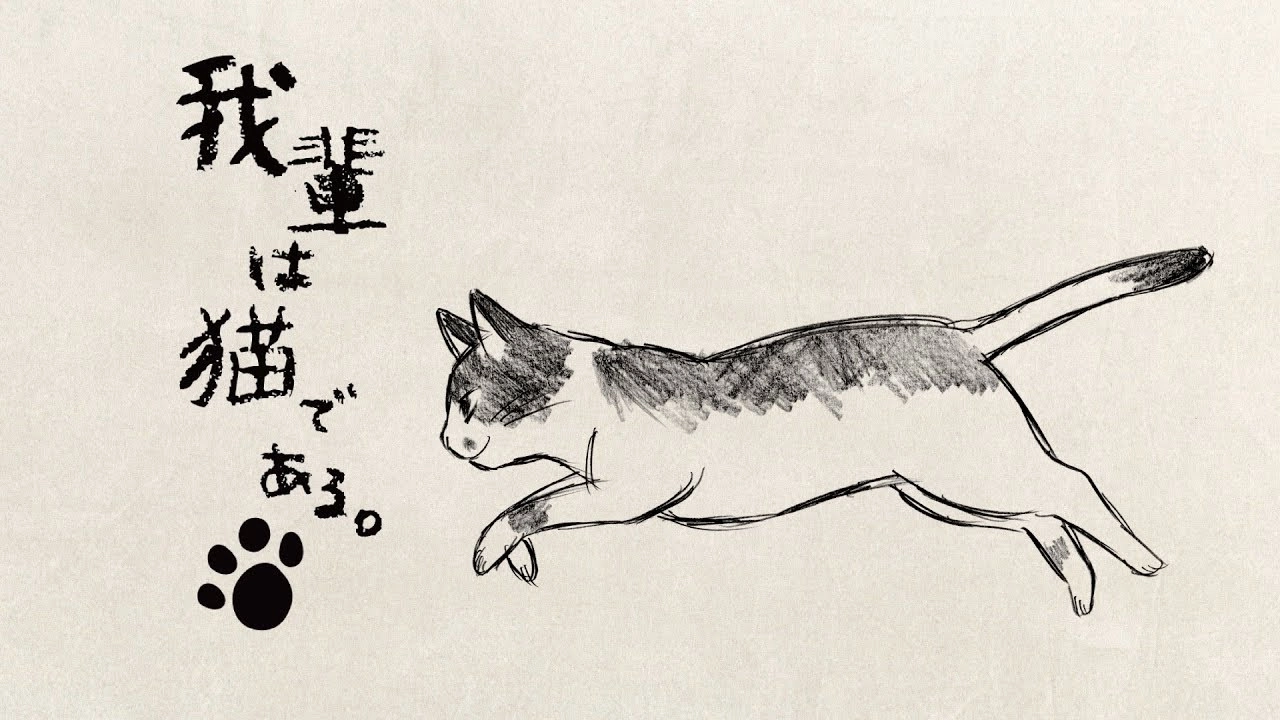 我輩は猫である。